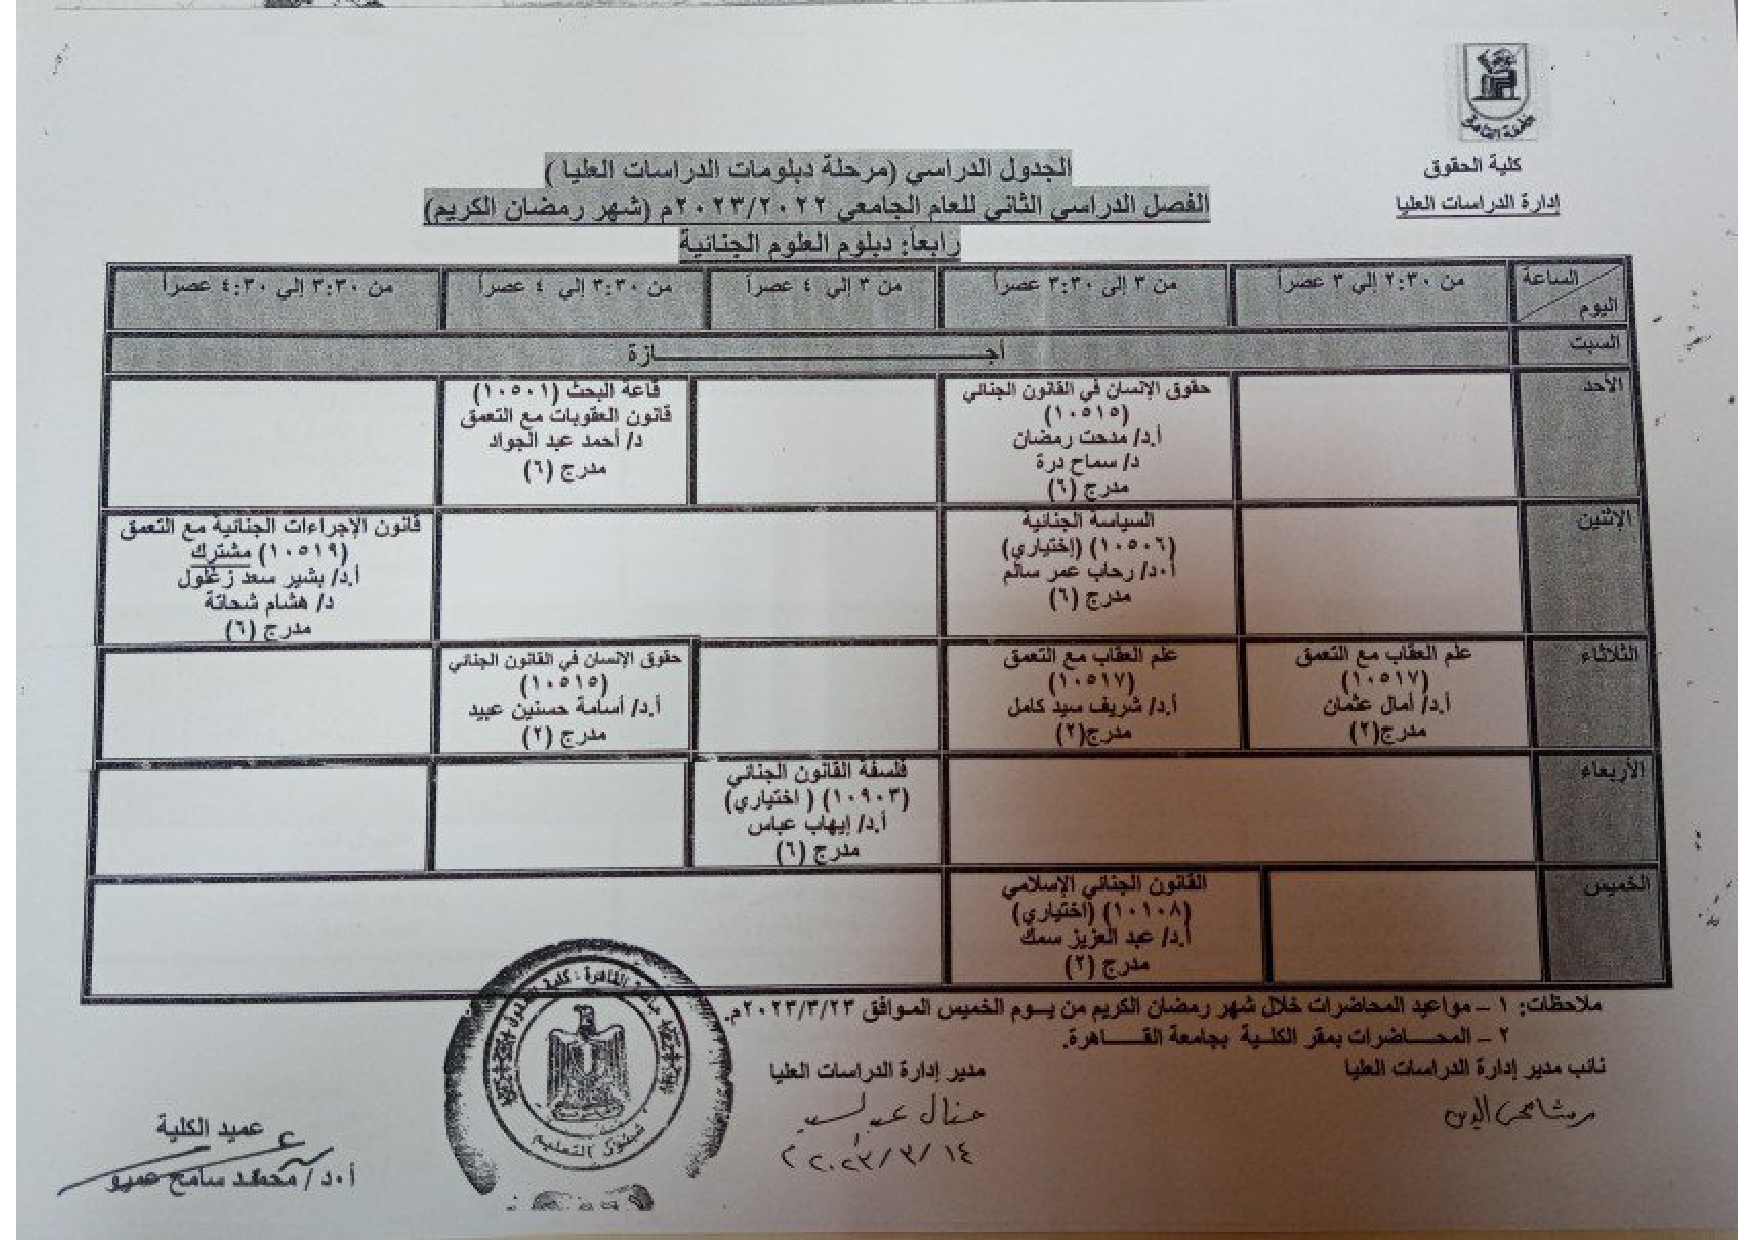 جامعة القاهرة
كلية الحقوق
إدارة الدراسات العليا
الجدول الدراسي (مرحلة دبلومات الدراسات العليا )
الفصل الدراسي الثاني للعام الجامعي ٢٠٢٣/٢٠٢٢م (شهر رمضان الكريم)
رابعاً: دبلوم العلوم الجنائية
الساعة
اليوم
من ٢:٣٠ إلي ٣ عصراً
من ٣ إلى ٣:٣٠ عصراً
من ٣ إلي ٤ عصراً
من ٣:٣٠ إلي ٤ عصراً
من ٣:٣٠ إلي ٤:٣٠ عصراً
السبت
أجـــــازة
الأحد
حقوق الإنسان في القانون الجنائي
(١٠٥١٥)
أ.د/ مدحت رمضان
د/ سماح درة
مدرج (٦)
قاعة البحث (١٠٥٠١)
قانون العقوبات مع التعمق
د/ أحمد عبد الجواد
مدرج (٦)
الإثنين
السياسة الجنائية
(١٠٥٠٦) (إختياري)
أ.د/ رحاب عمر سالم
مدرج (٦)
قانون الإجراءات الجنائية مع التعمق
(١٠٥١٩) مشترك
أ.د/ بشير سعد زغلول
د/ هشام شحاتة
مدرج (٦)
الثلاثاء
علم العقاب مع التعمق
(١٠٥١٧)
أ.د/ أمال عثمان
مدرج(٢)
علم العقاب مع التعمق
(١٠٥١٧)
أ.د/ شريف سيد كامل
مدرج(٢)
حقوق الإنسان في القانون الجنائي
(١٠٥١٥)
أ.د/ أسامة حسنين عبيد
مدرج (٢)
الأربعاء
فلسفة القانون الجنائي
(١٠٩٠٣) ( اختياري)
أ.د/ إيهاب عباس
مدرج (٦)
الخميس
القانون الجنائي الإسلامي
(١٠١٠٨) (اختياري)
أ.د/ عبد العزيز سمك
مدرج (٢)
ملاحظات: ١ – مواعيد المحاضرات خلال شهر رمضان الكريم من يــوم الخميس الموافق ٢٠٢٣/٣/٢٣م.
٢ – المحــاضرات بمقر الكلـية بجامعة القــــاهرة.
نائب مدير إدارة الدراسات العليا
مدير إدارة الدراسات العليا
٢٠٢٣/٣/١٤
شئون التعليم
عميد الكلية
أ.د/ محمد سامح عمرو